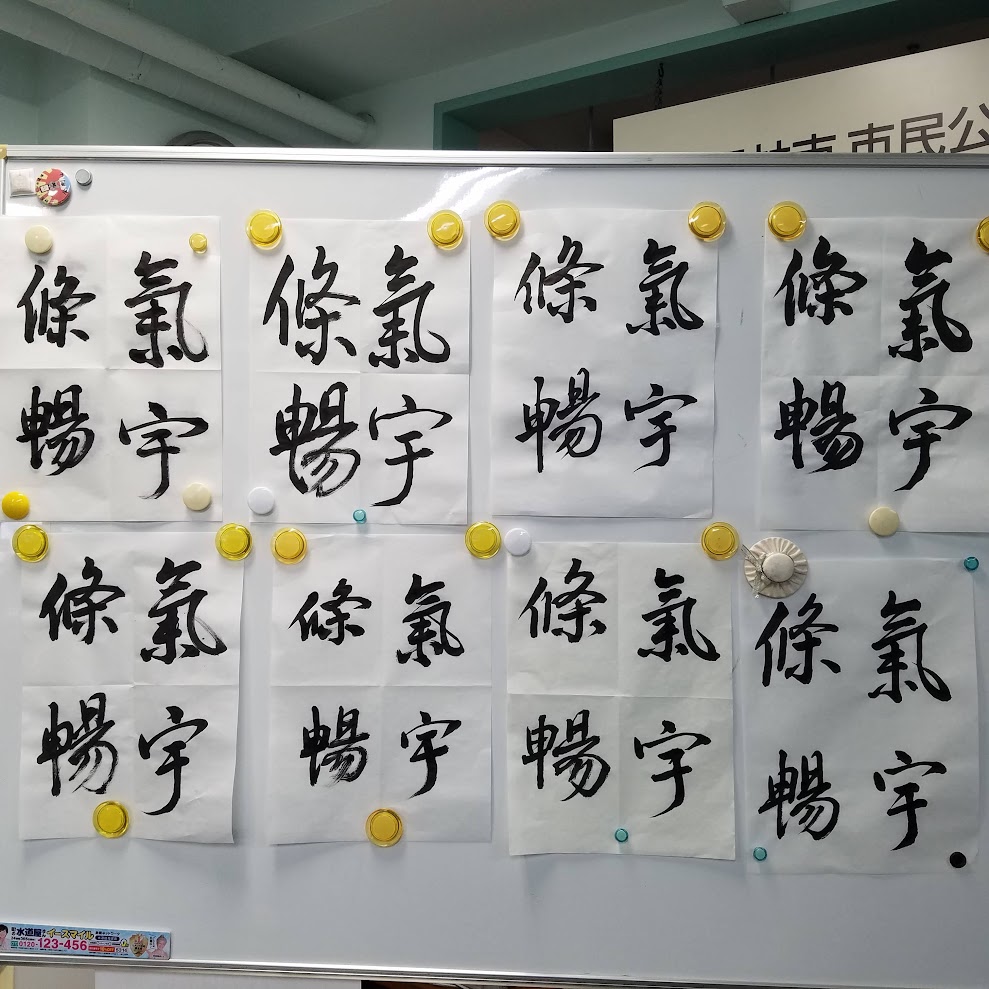 市民公
氣宇
條暢
氣宇
條暢
氣宇
條暢
氣宇
條暢
氣宇
條暢
氣宇
條暢
氣宇
條暢
氣宇
條暢
水道屋 イースマイル
0120-123-456